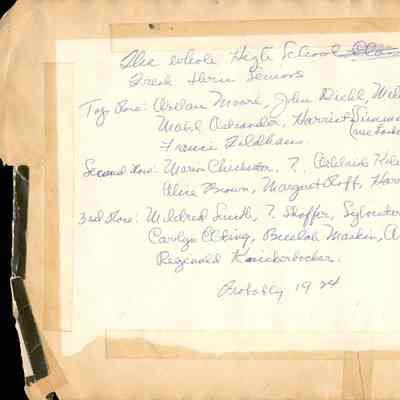 The whole High School Class
Fresh thru Seniors
Top Row: Arslan Moore, John Diehl, Mil
Mabel Ostrander, Harriet Simm
Francis Feldhaus.
Second Row: Marion Chichester, ?, Adelaide
Alice Brown, Margaret Roff, Harr
3rd Row: Mildred Smith, ? Shaffer, Sylvester
Carolyn Elting, Beulah Maskin, A
Reginald Knickerbocker.
Probably 1924